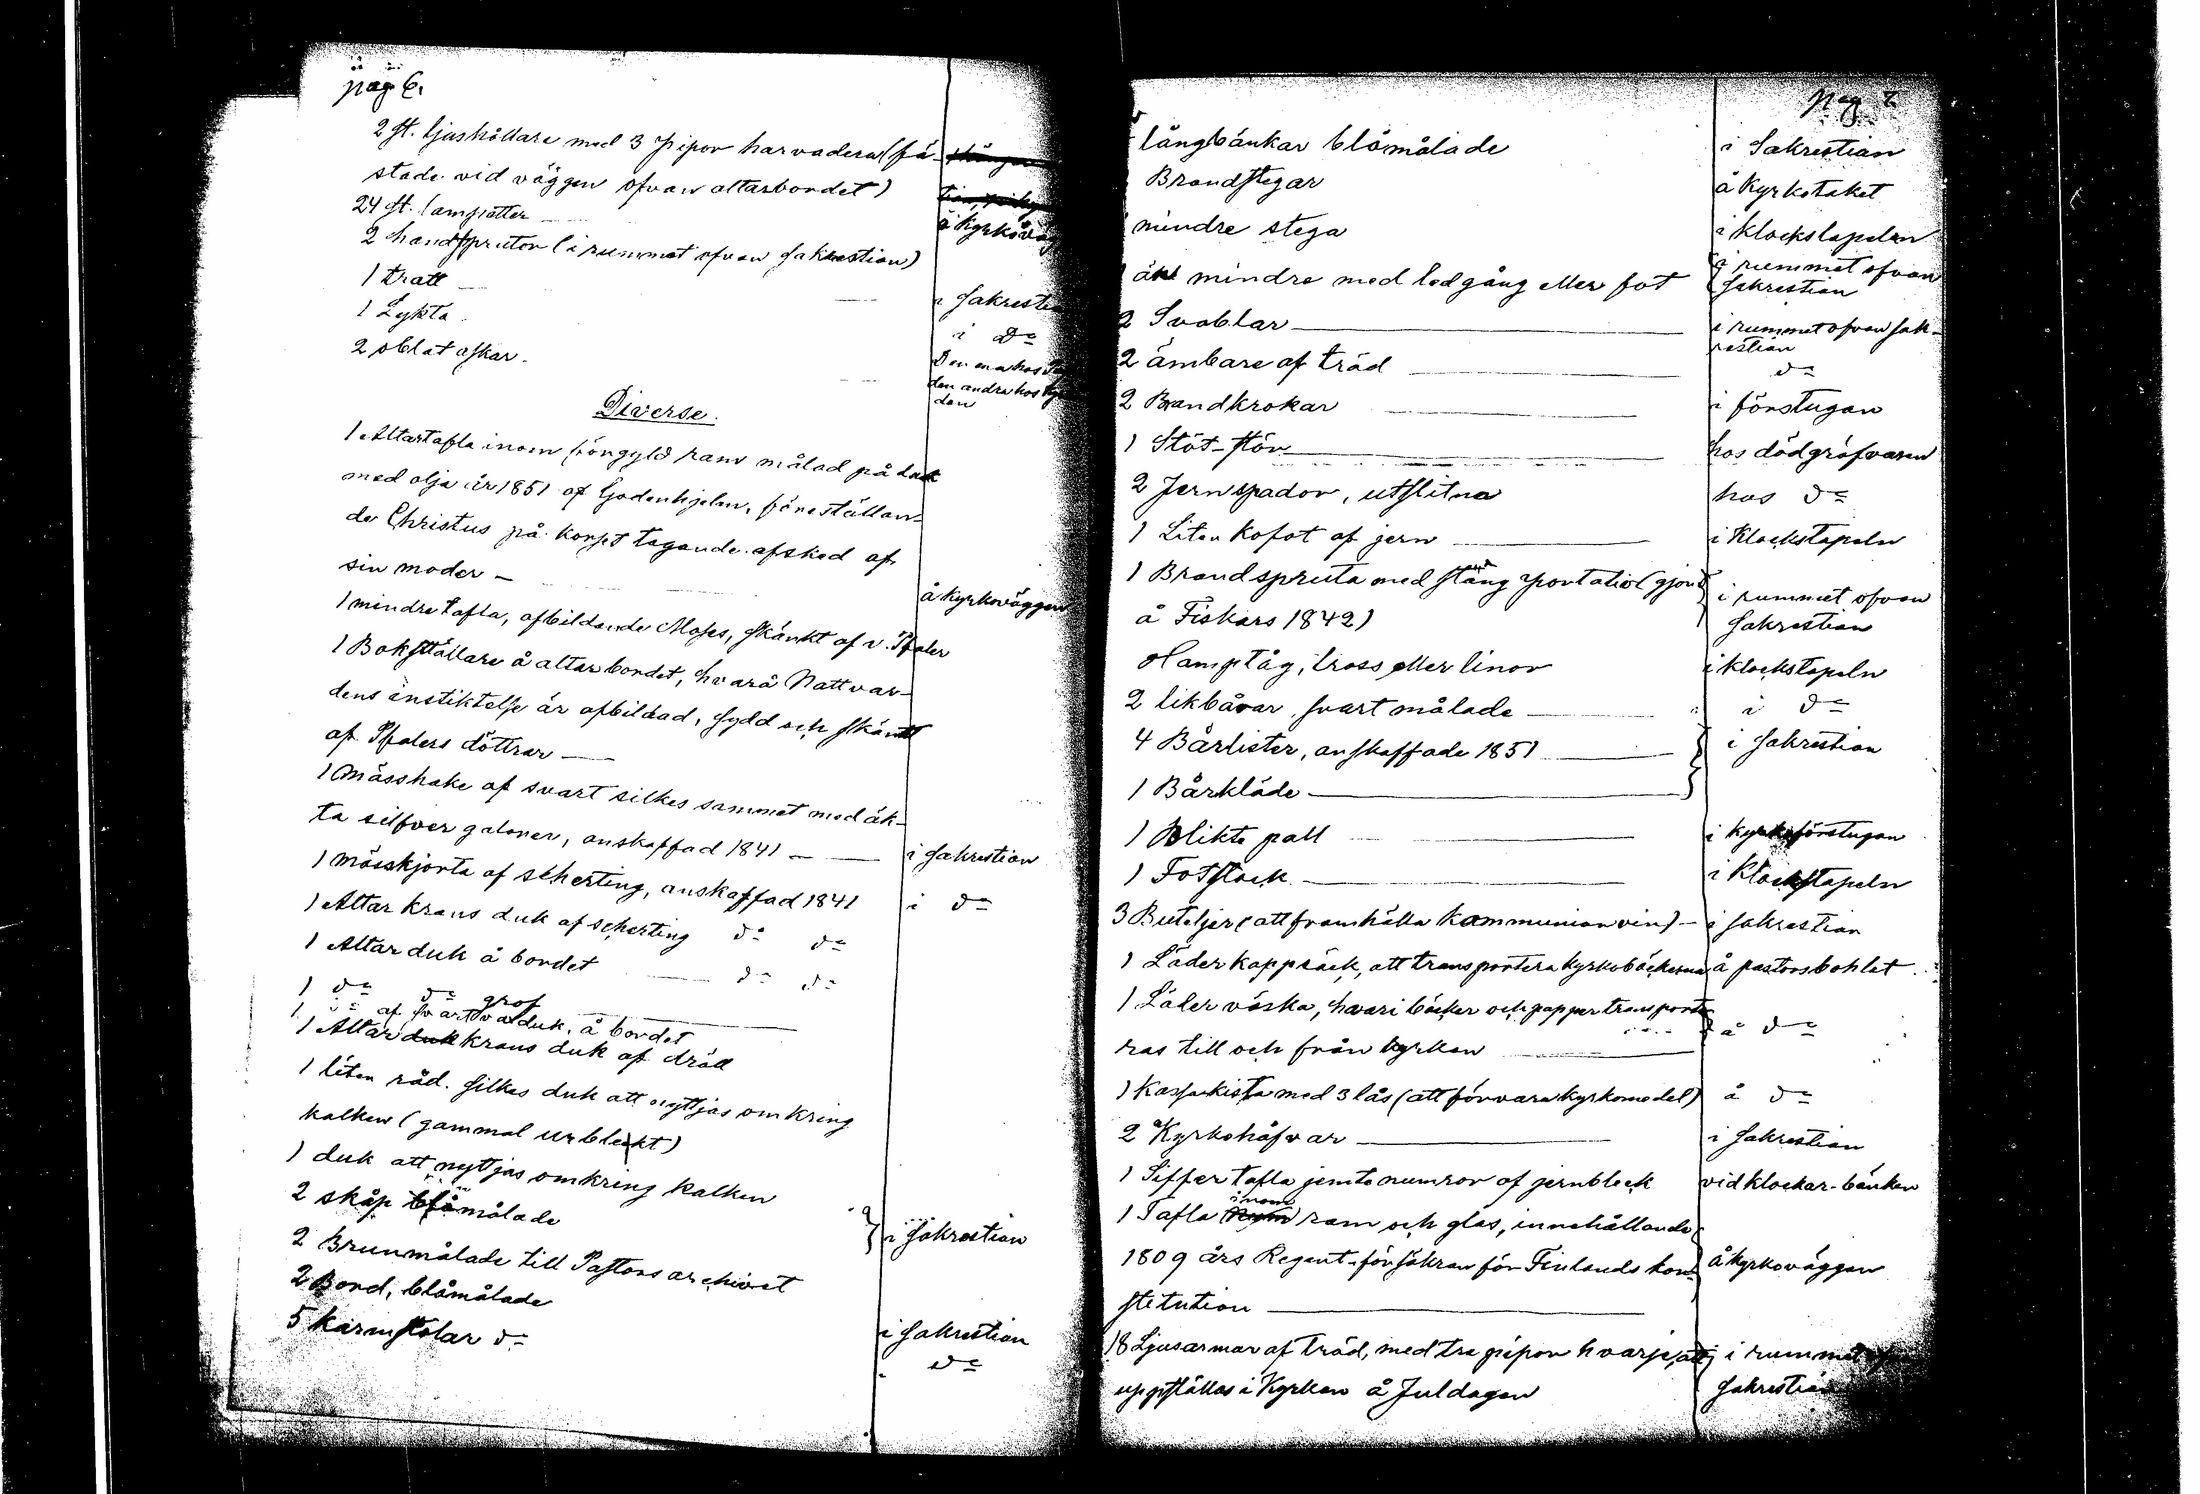 pag 6.
2 st. ljushållare med 3 pipor harvadera (fä-
stade vid väggen ofvan altarbordet)
24 st. lampetter
å Kyrkoväg
2 handsprutor (i rummet ofvan sakrestian)
1 tratt — i Sakresti
1 Lykta i do
2 oblat askar. Den ena hos
den andra hos
den
Diverse.
1 Altartafla inom förgyld ram målad på duk
med olja år 1851 af Godenhjelm, föreställan-
de Christus på korset tagande afsked af
sin moder — å kyrkoväggen
1 mindre tafla, afbildande Moses, skänkt af v. Pfaler
1 Bokställare å altarbordet, hvarå Nattvar-
dens instiktelse är afbildad, sydd och skänkt
af Pfalers döttrar —
1 Mässhake af svart silkes sammet med äk-
ta silfver galoner, anskaffad 1841 — i Sakrestian
1 mässkjorta af scherting, anskaffad 1841 i do
1 Altar krans duk af scherting do do
1 Altar duk å bordet — do do
1 do do grof
1 do af svart valduk, å bordet
1 Altar duk krans duk af dräll
1 liten röd silkes duk att nyttjas omkring
kalken (gammal urblekt)
1 duk att nyttjas omkring kalken
2 skåp blåmålade } i Sakrestian
2 Brunmålade till Pastors archivet
2 Bord, blåmålade i Sakrestian
5 karmstolar do do
pag 7
långbänkar blåmålade i Sakrestian
Brandstegar å Kyrkotaket
mindre stega i klockstapeln
1 än mindre med ledgång eller fot i rummet ofvan
Sakrestian
2 Svablar — i rummet ofvan sak-
restian
2 ämbare af träd — do
2 Brandkrokar — i förstugan
1 Stöt-stör — hos dödgräfvaren
2 Jernspador, utslitna hos do
1 Liten Kofot af jern — i Klockstapeln
1 Brandspruta med stång portativ (gjord
å Fiskars 1842) i rummet ofvan
Sakrestian
Hamptåg, tross eller linor i klockstapeln
2 likbårar svart målade — i do
4 Bårlister, anskaffade 1851 — i Sakrestian
1 Bårkläde —
1 Blikte pall — i kyrkoförstugan
1 Fotstock — i Klockstapeln
3 Buteljer (att framhålla kommunion vin) — i sakrestian
1 Läder kappsäck, att transportera kyrkoböckerna å pastorsbohlet
1 Läder väska, hvari böcker och papper transporte-
ras till och från kyrkan — å do
1 Kassakista med 3 lås (att förvara kyrkomedel) å do
2 Kyrkohåfvar — i Sakrestian
1 Siffertafla jemte numror af jernbleck vid klockar-bänken
inom
1 Tafla ram och glas, innehållande
1809 års Regent-försäkran för Finlands kon- å kyrkoväggen
stitution —
18 Ljusarmar af träd, med tre pipor hvarje, att i rummet
uppställas i Kyrkan å Juldagen Sakrestian